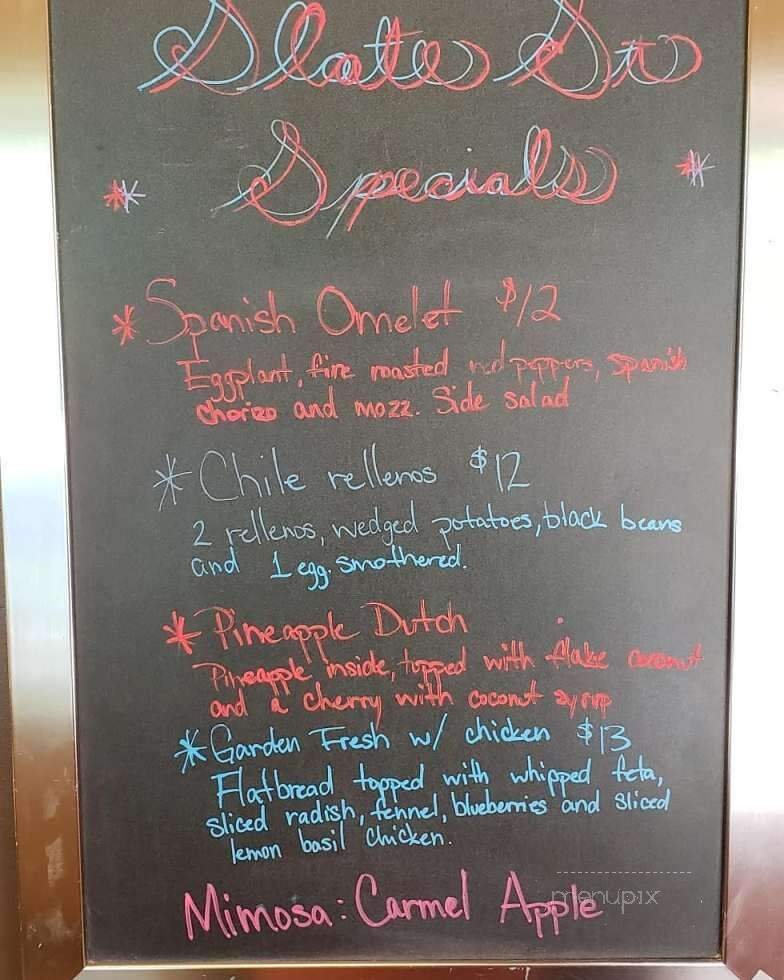 Slate St
Specials
* *
* Spanish Omelet $12
Eggplant, fire roasted red peppers, Spanish
chorizo and mozz. Side salad
* Chile rellenos $12
2 rellenos, wedged potatoes, black beans
and 1 egg. smothered.
* Pineapple Dutch
Pineapple inside, topped with flake coconut
and a cherry with coconut syrup
* Garden Fresh w/ chicken $13
Flatbread topped with whipped feta,
sliced radish, fennel, blueberries and sliced
lemon basil chicken.
Mimosa: Carmel Apple
menupix